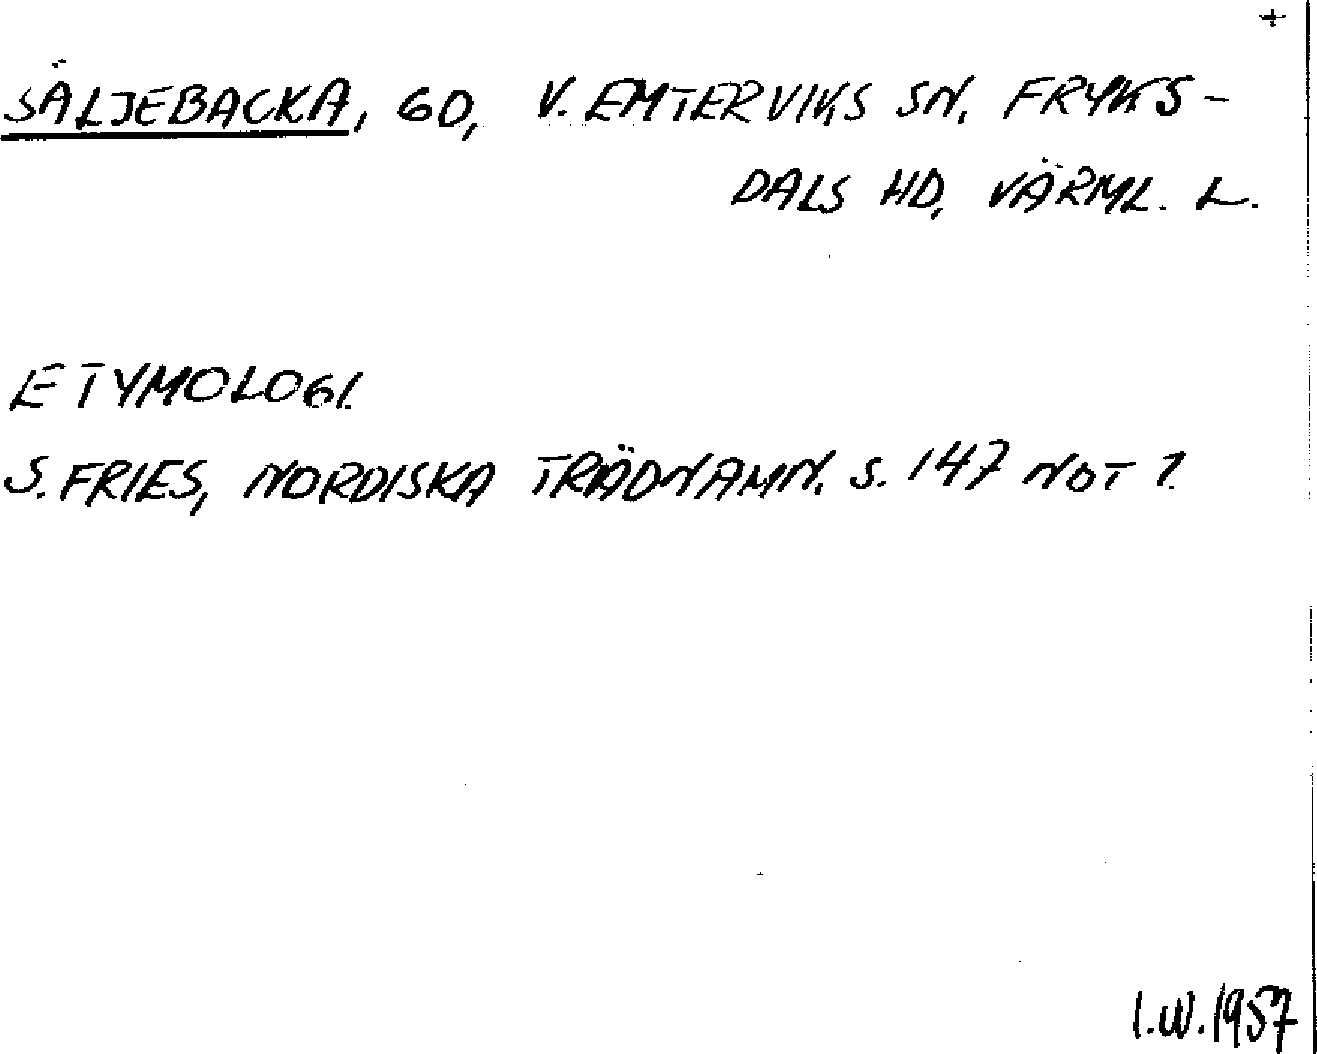 +
SÄLJEBACKA, GD, V. EMTERVIKS SN. FRYKS-
DALS HD, VÄRML. L.
ETYMOLOGI.
S. FRIES, NORDISKA TRÄDNAMN. S. 147 NOT 1.
I.W. 1957